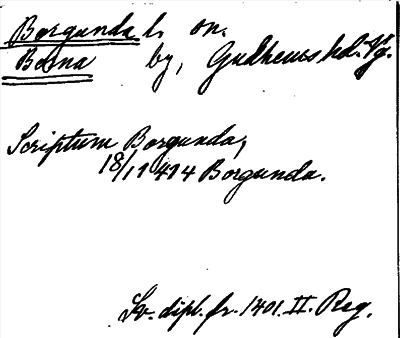 Borgunda l. on.
Borna by, Gudhems hd. Vg.
Scriptum Borgunda,
18/11 414 Borgunda.
Sv. dipl. fr. 1401. II. Reg.